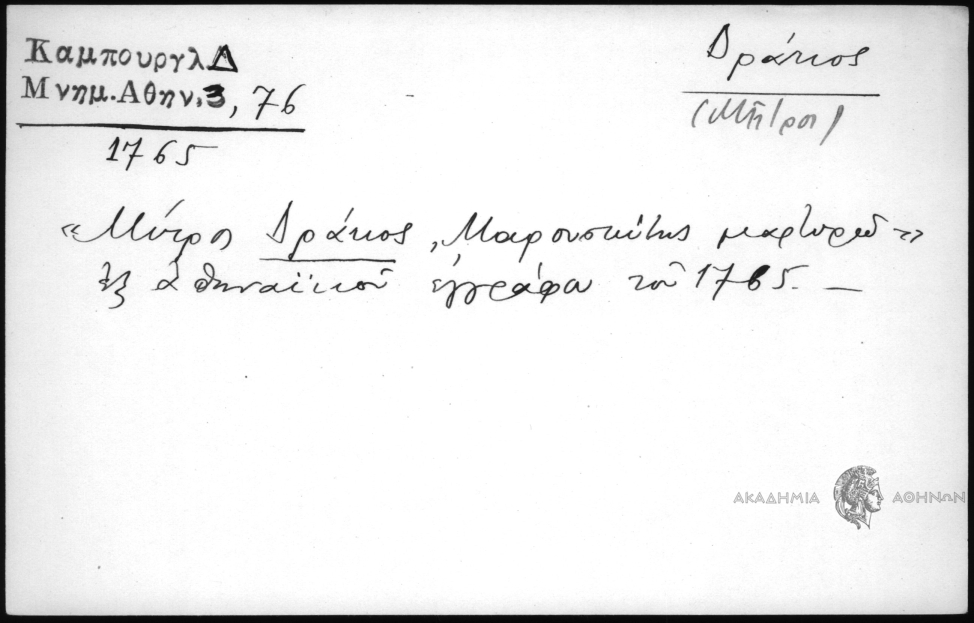 Καμπουργλ Δ
Μνημ. Αθην. 3, 76
1765
Δράκος
(Μήτρος)
«Μήτρος Δράκος, Μαρουσιώτης μαρτυρῶ»
ἐξ ἀθηναϊκοῦ ἐγγράφου τοῦ 1765. —
ΑΚΑΔΗΜΙΑ ΑΘΗΝΩΝ